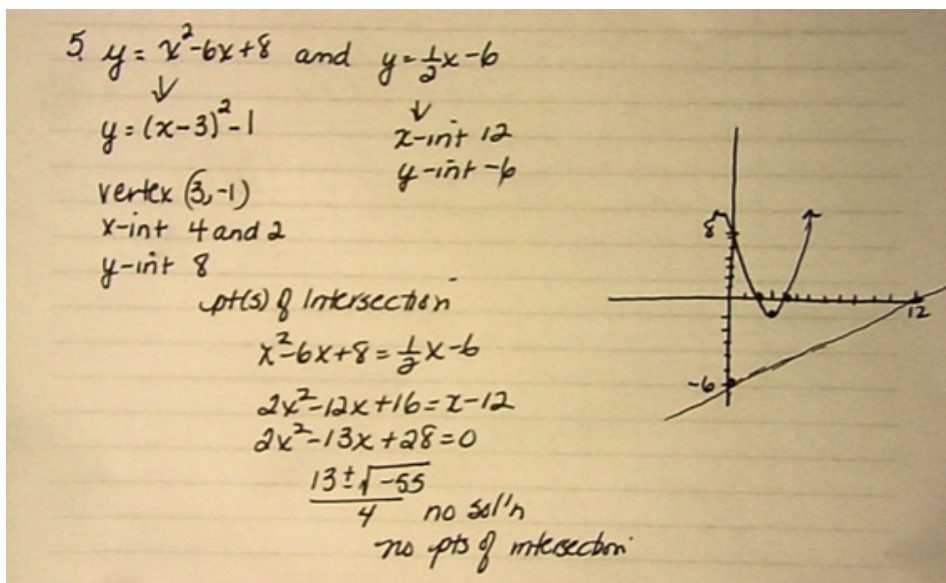 5. y = x²-6x+8 and y = ½x-6
↓ ↓
y = (x-3)²-1
x-int 12
y-int -6
vertex (3,-1)
x-int 4 and 2
y-int 8
pt(s) of Intersection
x²-6x+8 = ½x-6
2x²-12x+16 = x-12
2x²-13x+28=0
13±√-55
4
no sol'n
no pts of intersection
8
12
-6